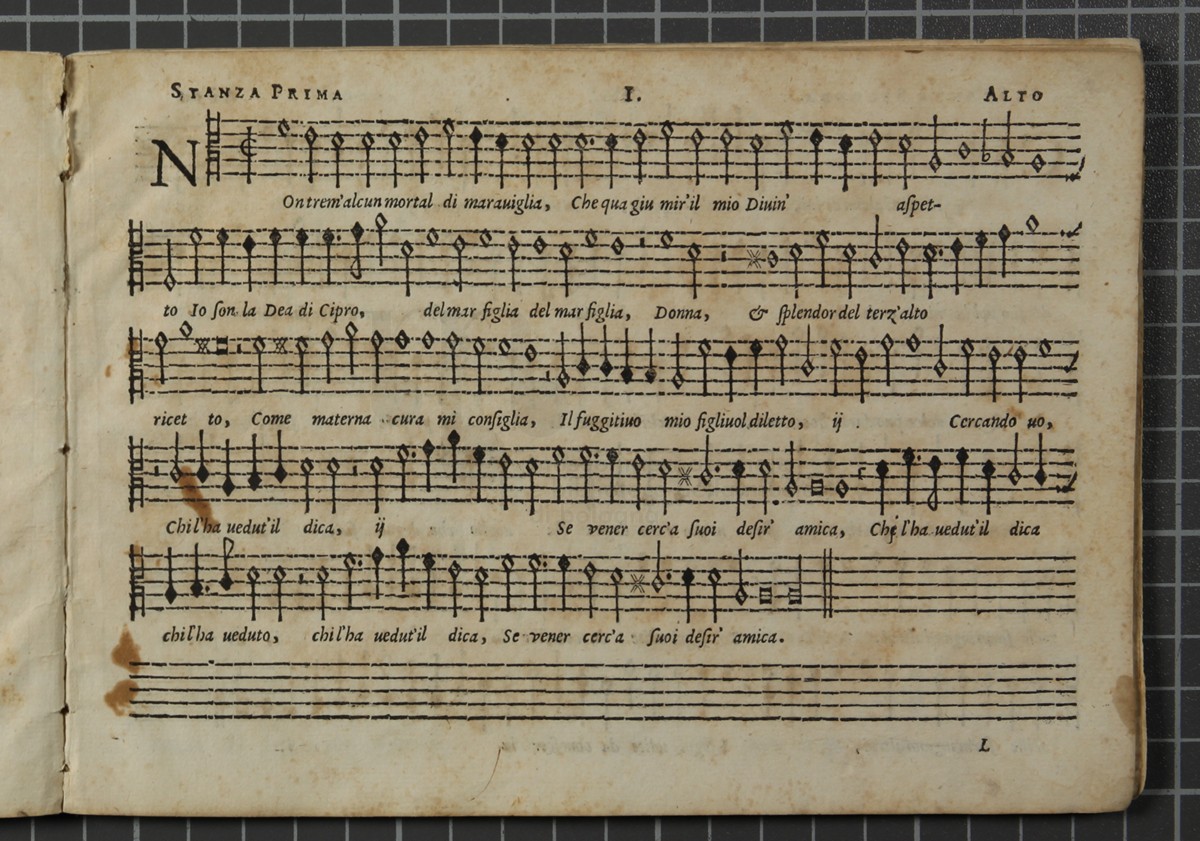 STANZA PRIMA I. ALTO
NOn trem'alcun mortal di marauiglia, Che qua giu mir'il mio Diuin' aspet-
to Io son la Dea di Cipro, del mar figlia del mar figlia, Donna, & splendor del terz'alto
ricet to, Come materna cura mi consiglia, Il fuggitiuo mio figliuol diletto, ij . Cercando uo,
Chi l'ha uedut'il dica, ij Se vener cerc'a suoi desir' amica, Chi l'ha uedut'il dica
chi l'ha ueduto, chi l'ha uedut'il dica, Se vener cerc'a suoi desir' amica.
L